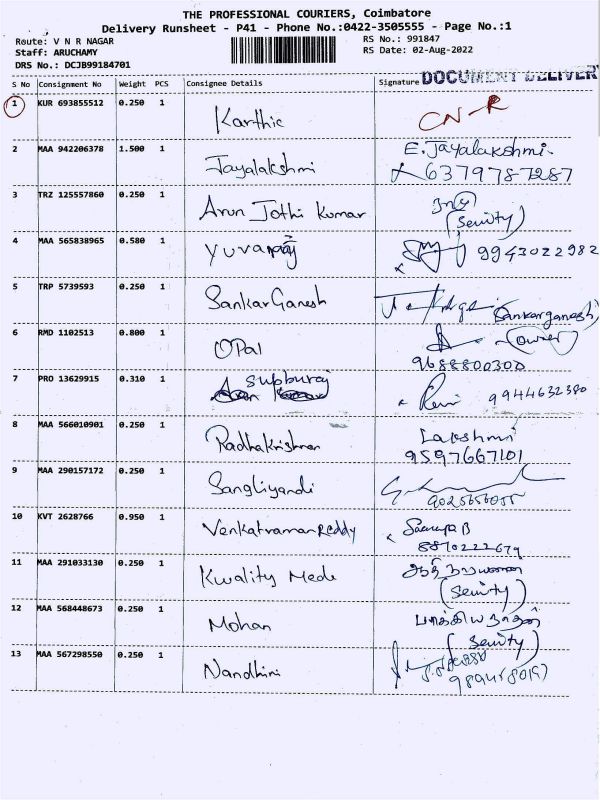 THE PROFESSIONAL COURIERS, Coimbatore
Delivery Runsheet - P41 - Phone No.:0422-3505555 - Page No.:1
Route: V N R NAGAR
RS No.: 991847
Staff: ARUCHAMY
RS Date: 02-Aug-2022
DRS No.: DCJB99184701
S No Consignment No Weight PCS Consignee Details Signature DOCUMENT DELIVER
1 KUR 693855512 0.250 1 Karthic CN-R
2 MAA 942206378 1.500 1 Jayalakshmi E. Jayalakshmi.
6379787287
3 TRZ 125557860 0.250 1 Arun Jothi Kumar
(Senity)
4 MAA 565838965 0.580 1 Yuvaraj 9943022982
5 TRP 5739593 0.250 1 Sankar Ganesh Sankarganesh
6 RMD 1102513 0.800 1 Opal (owner)
9688800300
7 PRO 13629915 0.310 1 Supburaj 9944632380
8 MAA 566010901 0.250 1 Radhakrishnan Lakshmi
9597667101
9 MAA 290157172 0.250 1 Sangliyandi
10 KVT 2628766 0.950 1 Venkatraman Reddy
8870222679
11 MAA 291033130 0.250 1 Kwality Mede
(Senity)
12 MAA 568448673 0.250 1 Mohan பாக்கியநாதன்
(Senity)
13 MAA 567298550 0.250 1 Nandhini